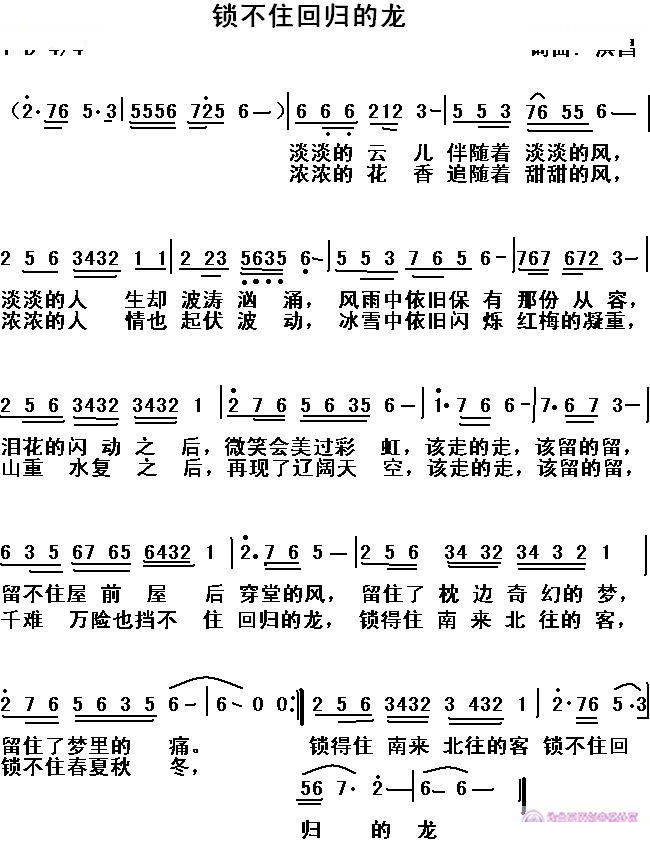 锁不住回归的龙
(2·76 5·3 | 5556 725 6— ) | 6 6 6 212 3— | 5 5 3 76 55 6— |
淡淡的 云 儿 伴随着 淡淡的风，
浓浓的 花 香 追随着 甜甜的风，
2 5 6 3432 1 1 | 2 23 5635 6— | 5 5 3 7 6 5 6— | 767 672 3— |
淡淡的人 生却 波涛 汹 涌， 风雨中依旧保 有 那份 从 容，
浓浓的人 情也 起伏 波 动， 冰雪中依旧闪 烁 红梅的凝重，
2 5 6 3432 3432 1 | 2 7 6 5 6 35 6— | 1· 7 6 5 6— | 7· 6 7 3— |
泪花的闪 动 之 后，微笑会美过彩 虹，该走的走，该留的留，
山重 水复 之 后，再现了辽阔天 空，该走的走，该留的留，
6 3 5 67 65 6432 1 | 2· 7 6 5— | 2 5 6 34 32 34 3 2 1 |
留不住屋 前 屋 后 穿堂的风， 留住了 枕 边 奇 幻的 梦，
千难 万险也挡不 住 回归的龙， 锁得住 南 来 北 往的 客，
2 7 6 5 6 3 5 6— | 6— 0 0 :‖ 2 5 6 3432 3 432 1 | 2· 76 5 ·3 |
留住了梦里的 痛。 锁得住 南来 北往的客 锁不住回
锁不住春夏秋 冬，
56 7· 2— | 6— 6— ‖
归 的 龙